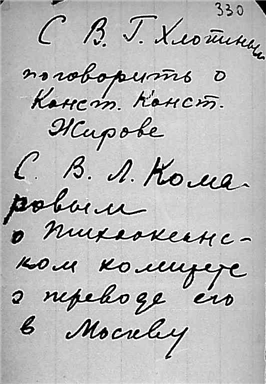 330
С В. Г. Хлопиным
поговорить о
Конст. Конст.
Жирове
С. В. Л. Кома-
ровым
о Тихоокеанс-
ком комитете
о переводе его
в Москву